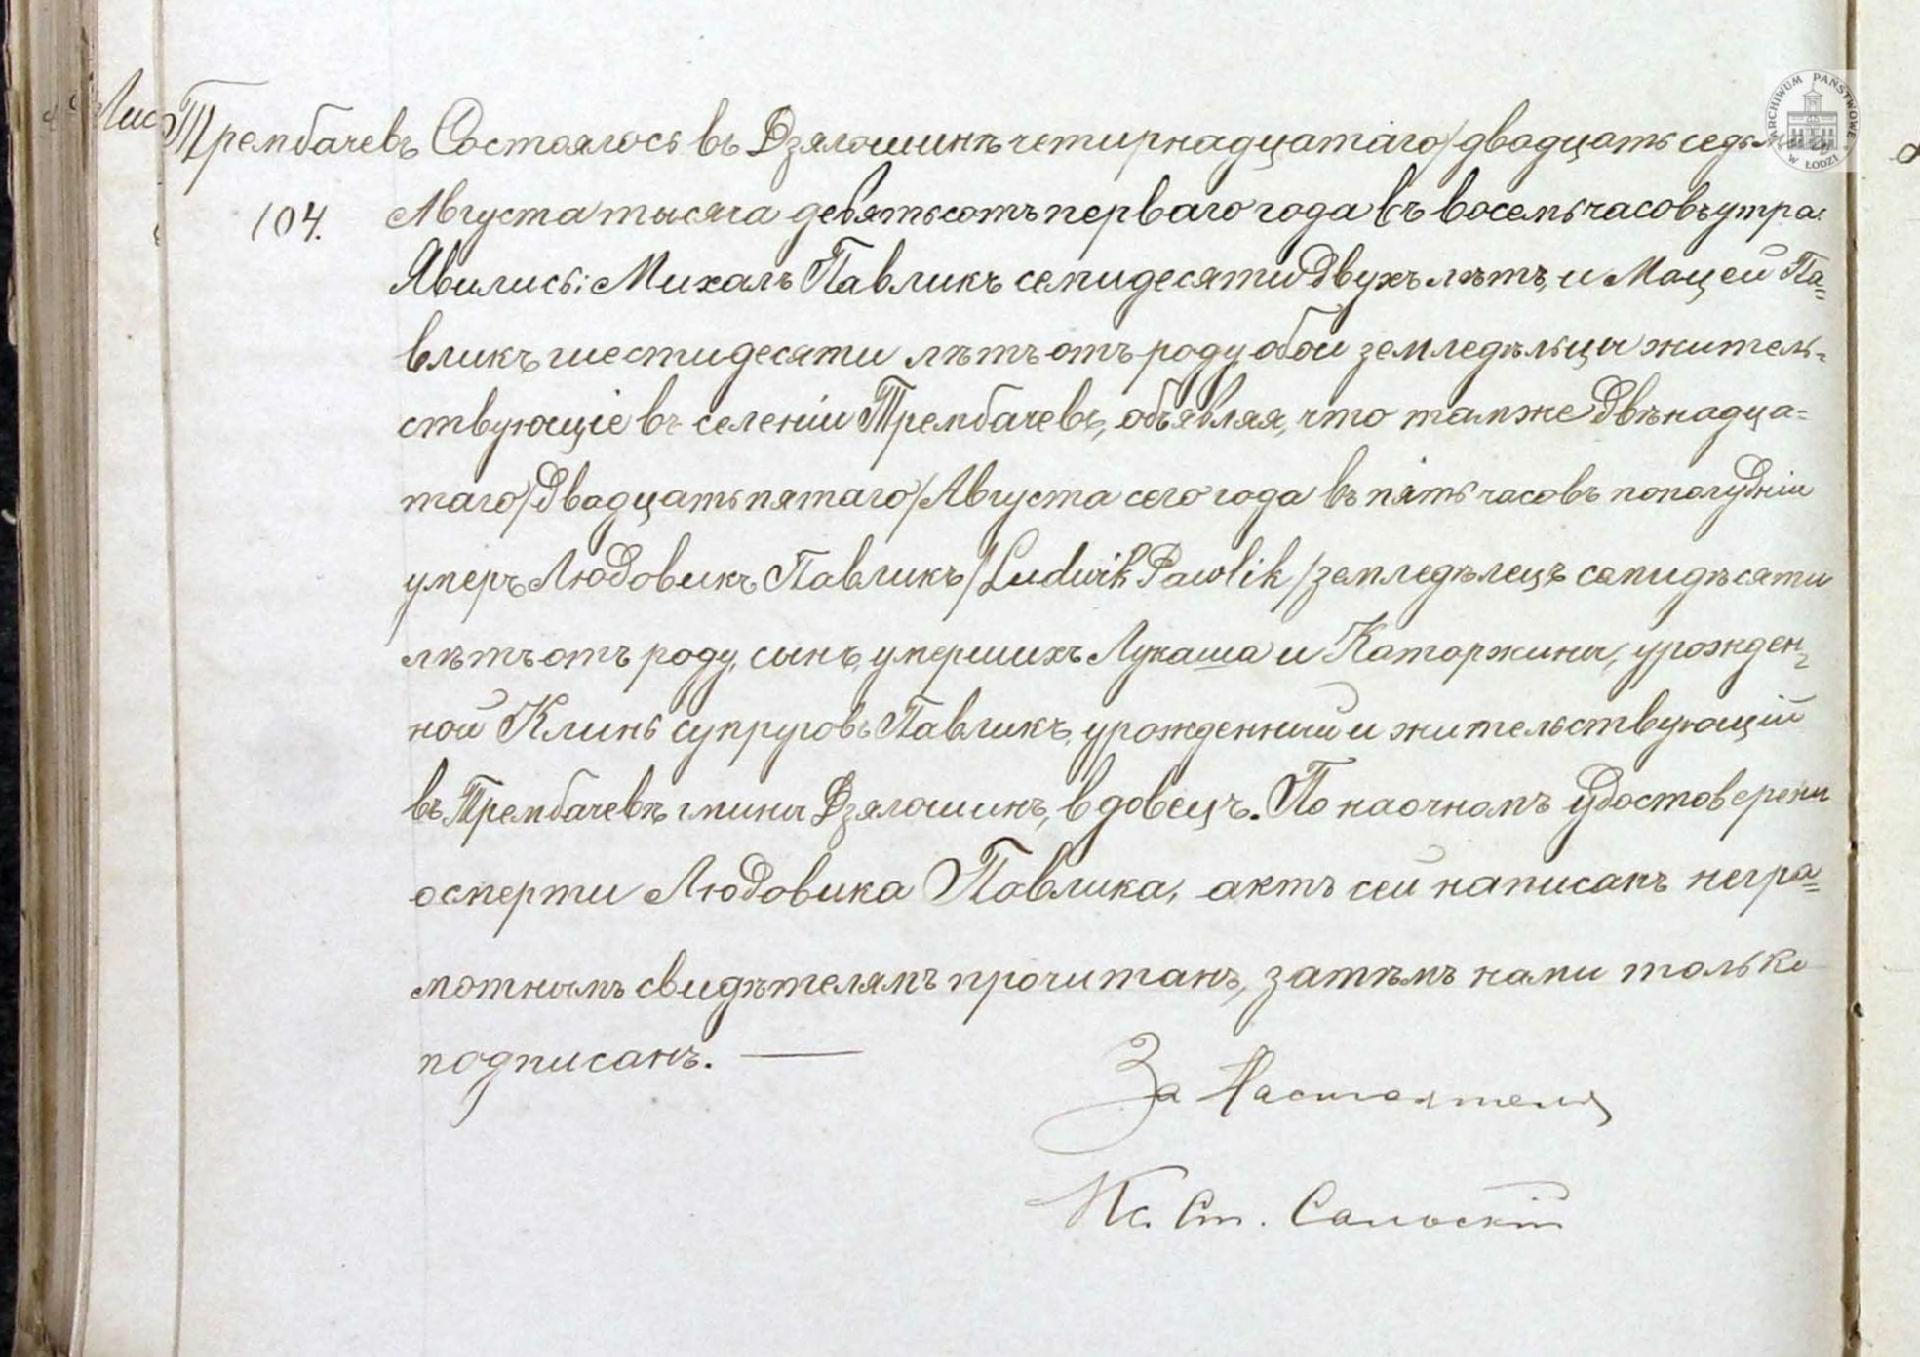 Трембачевъ Состоялось въ Дзялошинѣ четирнадцатаго/двадцать
104. Августа тысяча девятьсотъ перваго года въ восемь часовъ утра.
Явились: Михалъ Павликъ семидесяти двухъ лѣтъ, и Мацей Па=
вликъ шестидесяти лѣтъ отъ роду, обои земледѣльцы житель-
ствующіе въ селеніи Трембачевъ, объявляя, что тамже двѣнадца=
таго/двадцать пятаго/Августа сего года въ пять часовъ пополудніи
умеръ Людовикъ Павликъ/Ludwik Pawlik/земледѣлецъ семидѣсяти
лѣтъ отъ роду, сынъ умершихъ Лукаша и Каторжины, урожден-
нойКлинь супруговъ Павликъ, урожденний и жительствующій
въ Трембачевѣ гмины Дзялошинъ, вдовецъ. По наочномъ удостоверени
о смерти Людовика Павлика, актъ сей написанъ негра=
мотнымъ свидѣтелямъ прочитанъ, затѣмъ нами только
подписанъ. —
За Настоятеля
Кс. Ст.
ARCHIWUM PAŃSTWOWE W ŁODZI